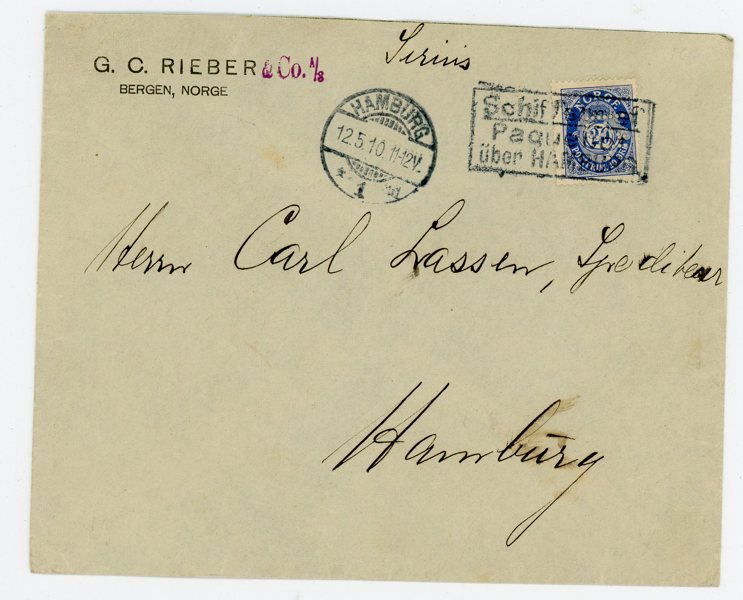 Sirius
G. C. RIEBER & Co. A/S
BERGEN, NORGE
HAMBURG
12.5.10.11-12V.
* 1
Schiff
Paqu
über HAM
NORGE
20
Herrn Carl Lassen, Spediteur
Hamburg